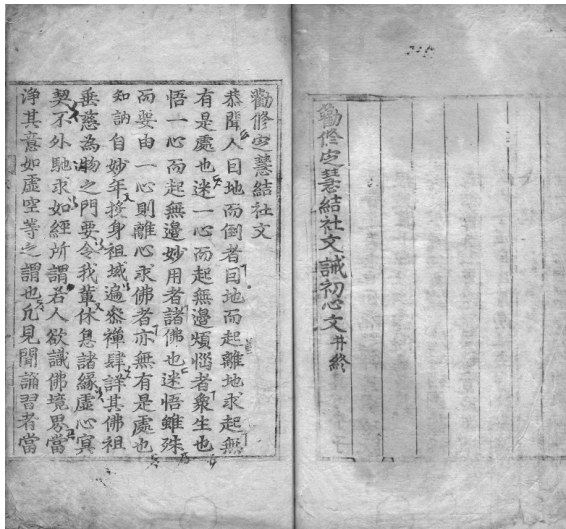 勸修㝎慧結社文誡初心文并終
勸修㝎慧結社文
恭聞人因地而倒者因地而起離地求起無
有是處也迷一心而起無邊煩惱者衆生也
悟一心而起無邊妙用者諸佛也迷悟雖殊
而要由一心則離心求佛者亦無有是處也
知訥自妙年投身祖域遍叅禪肆詳其佛祖
垂慈為物之門要令我軰休息諸緣虛心冥
契不外馳求如經所謂若人欲識佛境界當
淨其意如虛空等之謂也凡見聞誦習者當